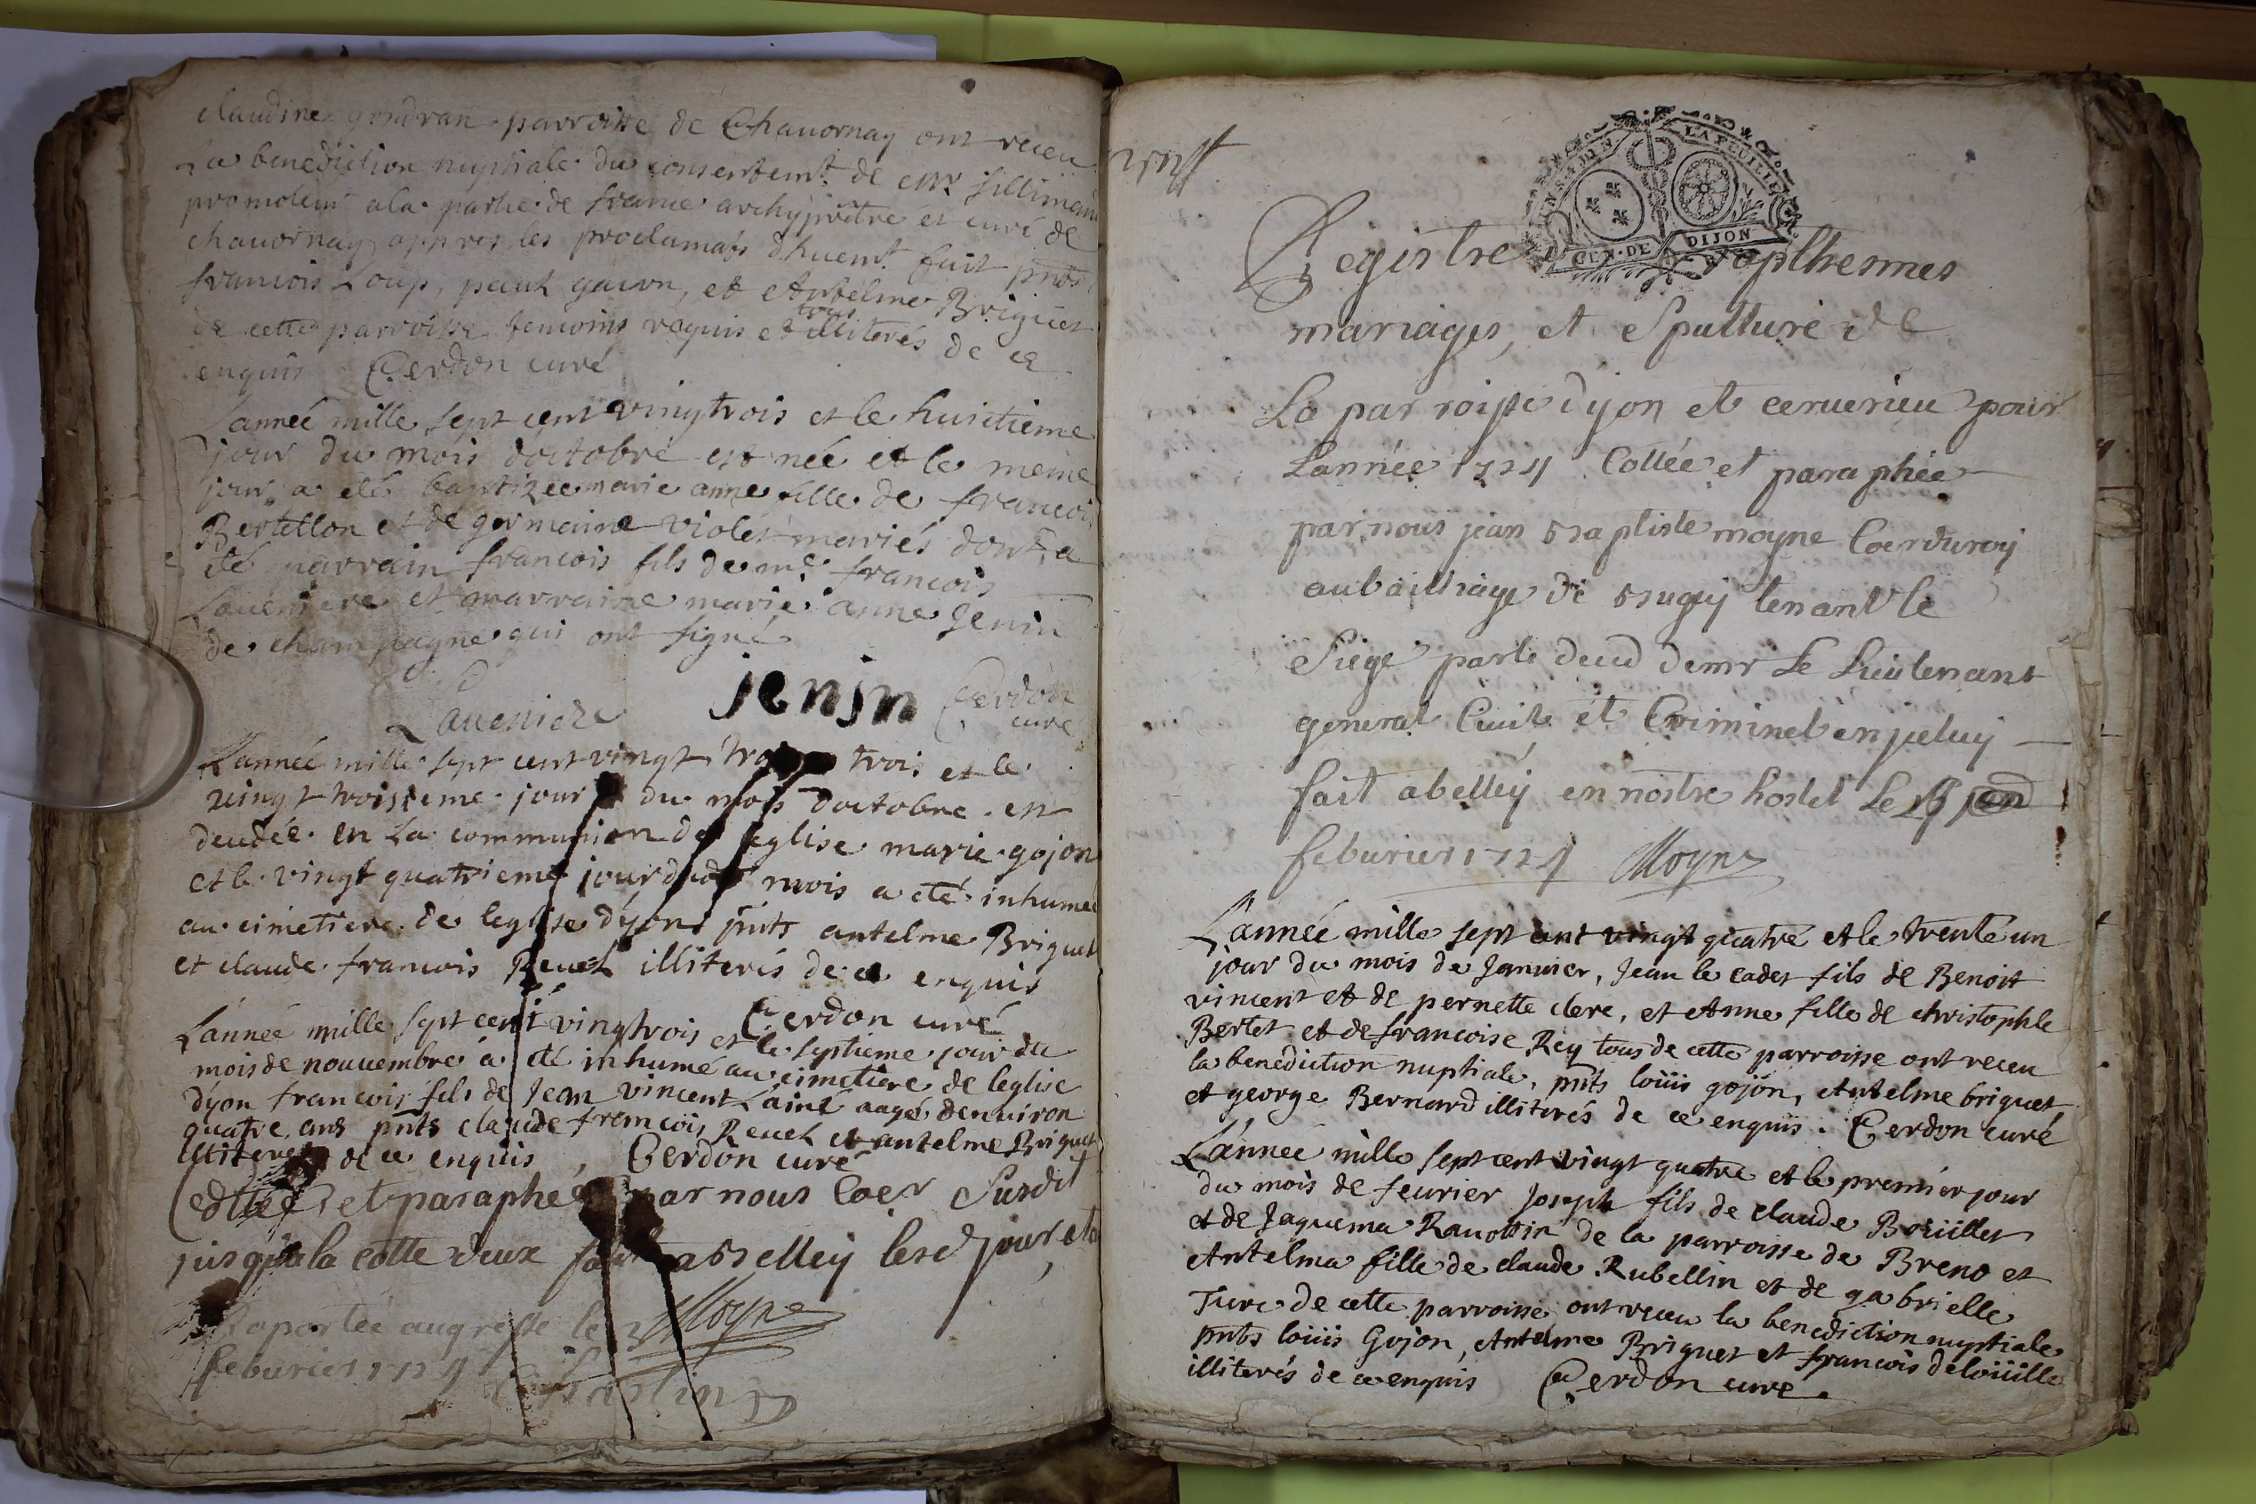 claudine gondran parroisse de Chavornay ont receu
La benediction nuptiale du consentemt de Mr
promoteur a la partie de france archyprêtre et curé de
chavornay appres les proclamats dhuemt fait pnts
francois Loup, et Antelme Briguet
de cette parroisse temoins requis et tous illiterés de ce
enquis Cerdon curé
L'année mille sept cent vingtrois et le huictieme
jour du mois doctobre est née et le meme
jour a eté baptizée marie anne fille de francois
Bertellon et de germaine violet mariés dont a
eté parrain francois fils de me francois
Laueniere et marraine marie anne Jenin
de champagne qui ont signé
Laueniere jenin Cerdon
curé
L'année mille sept cent vingt trois et le
vingt troisieme jour du mois doctobre est
decedée en La communion de leglise marie gojon
et le vingt quatrieme jour dudt mois a eté inhumée
au cimetiere de leglise dÿon pnts antelme Briguet
et claude francois Reuel illiterés de ce enquis
Cerdon curé
L'année mille sept cent vingtrois et le septieme jour du
mois de nouuembre a eté inhumé au cimetiere de leglise
dÿon francois fils de Jean vincent Lainé aagé denuiron
quatre ans pnts claude francois Reuel et antelme Briguet
illiterés de ce enquis Cerdon curé
Cottée et paraphée par nous Coer Susdit
jusqua la cotte deux fait a Belley lesd jour et
Raportée au greffe le Moyne
feburier 1724
GEN DE DIJON
LA FEUILLE
Registre Bapthesmes
mariages, et Spulture de
La parroisse dyon et ceruerieu pour
Lannée 1724 Cottée et paraphée
par nous jean Baptiste moyne Coerduroy
au bailliage de Bugey tenant le
Siege parti decd demr Le Lieutenant
general Ciuil et Criminel en jceluy
fait a belley en nostre hostel Le
feburier 1724 Moyne
L'année mille sept cent vingt quatre et le trente un
jour du mois de Januier, Jean le cadet fils de Benoit
vincent et de pernette clerc, et Anne fille de christophle
Bertet et de francoise Rey tous de cette parroisse ont receu
la benediction nuptiale, pnts loüis gojon, Antelme briguet
et george Bernard illiterés de ce enquis. Cerdon curé
L'année mille sept cent vingt quatre et le premiér jour
du mois de feurier Joseph fils de claude Boüillet
et de Jaquema Rauottin de la parroisse de Breno et
Antelma fille de claude Rubellin et de gabrielle
Turc de cette parroisse ont receu la benediction nuptiale
pnts loüis Gojon, Antelme Briguet et francois deloüille
illiterés de ce enquis Cerdon curé.